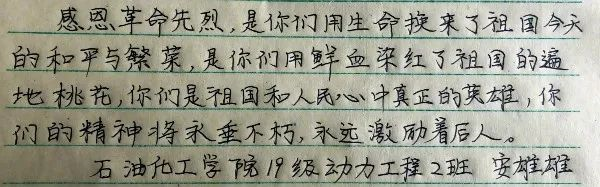 感恩革命先烈，是你们用生命换来了祖国今天
的和平与繁荣，是你们用鲜血染红了祖国的遍
地桃花，你们是祖国和人民心中真正的英雄，你
们的精神将永垂不朽，永远激励着后人。
石油化工学院19级动力工程2班 安雄雄